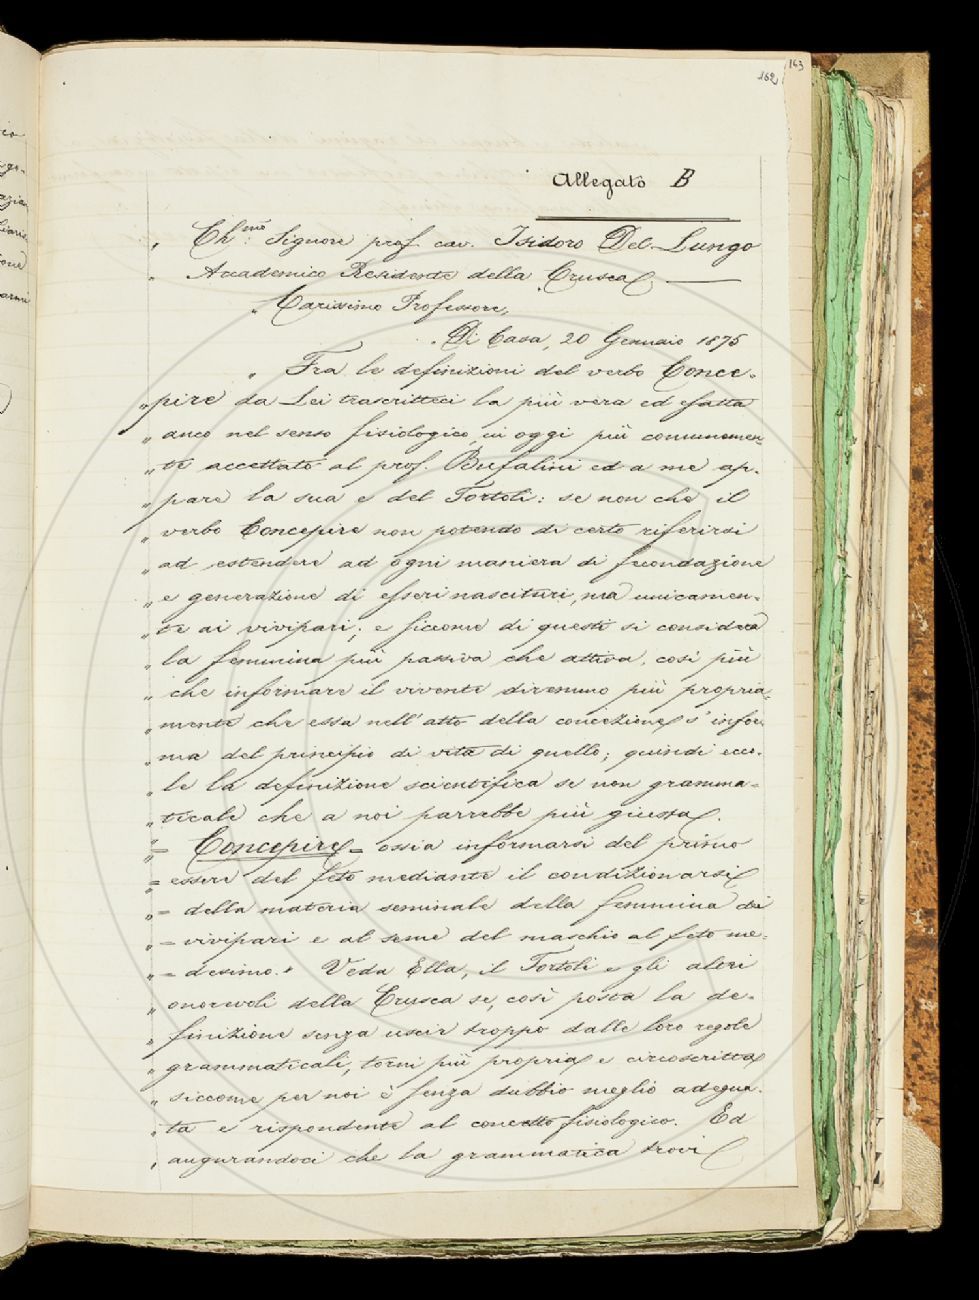 163
162
Allegato B
„ Ch.mo Signore prof. cav. Isidoro Del Lungo
„ Accademico Residente della Crusca
„ Carissimo Professore,
„ Di Casa, 20 Gennaio 1875
„ Fra le definizioni del verbo Conce-
„ pire da Lei trascritteci la più vera ed esatta
„ anco nel senso fisiologico, in oggi più comunemen-
„ te accettato al prof. Bufalini ed a me ap-
„ pare la sua e del Tortoli: se non che il
„ verbo Concepire non potendo di certo riferirsi
„ ad estendere ad ogni maniera di fecondazione
„ e generazione di esseri nascituri, ma unicamen-
„ te ai vivipari; e siccome di questi si considera
„ la femmina più passiva che attiva, così più
„ che informare il vivente diremmo più propria-
„ mente che essa nell'atto della concezione s'infor-
„ ma del principio di vita di quello; quindi ecco-
„ le la definizione scientifica se non gramma-
„ ticale che a noi parrebbe più giusta.
„ = Concepire = ossia informarsi del primo
„ = essere del feto mediante il condizionarsi
„ = della materia seminale della femmina dei
„ = vivipari e al seme del maschio al feto me-
„ = desimo. „ Veda Ella, il Tortoli e gli altri
„ onorevoli della Crusca se, così posta la de-
„ finizione senza uscir troppo dalle loro regole
„ grammaticali, torni più propria e circoscritta
„ siccome per noi è senza dubbio meglio adegua-
„ ta e rispondente al concetto fisiologico. Ed
„ augurandoci che la grammatica trovi